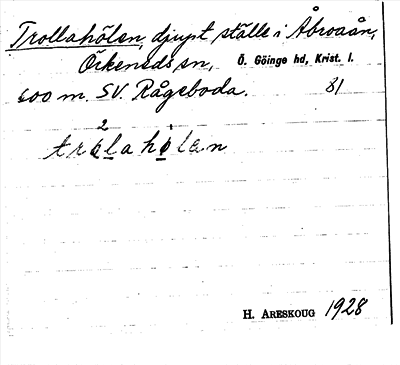 Trollahölen, djupt ställe i Åbroaån,
Örkeneds sn, Ö. Göinge hd, Krist. l.
600 m. SV. Rågeboda. 81
H. ARESKOUG 1928